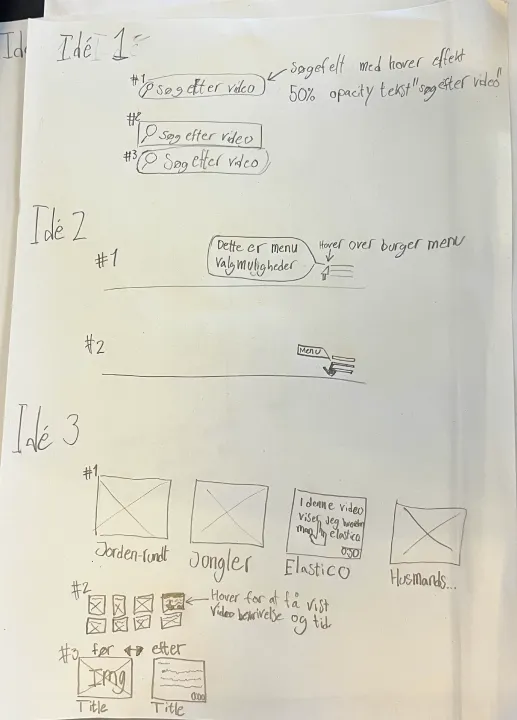 Idé 1
#1
Søg efter video
Søgefelt med hover effekt
50% opacity tekst "søg efter video"
#2
Søg efter video
#3
Søg efter video
Idé 2
#1
Dette er menu
valgmuligheder
Hover over burger menu
#2
Menu
Idé 3
#1
I denne video
viser jeg hvordan
man elastico
0:30
Jorden-rundt
Jongler
Elastico
Husmands...
#2
Hover for at få vist
Video beskrivelse og tid
#3 før ↔ efter
Img
0:00
Title
Title